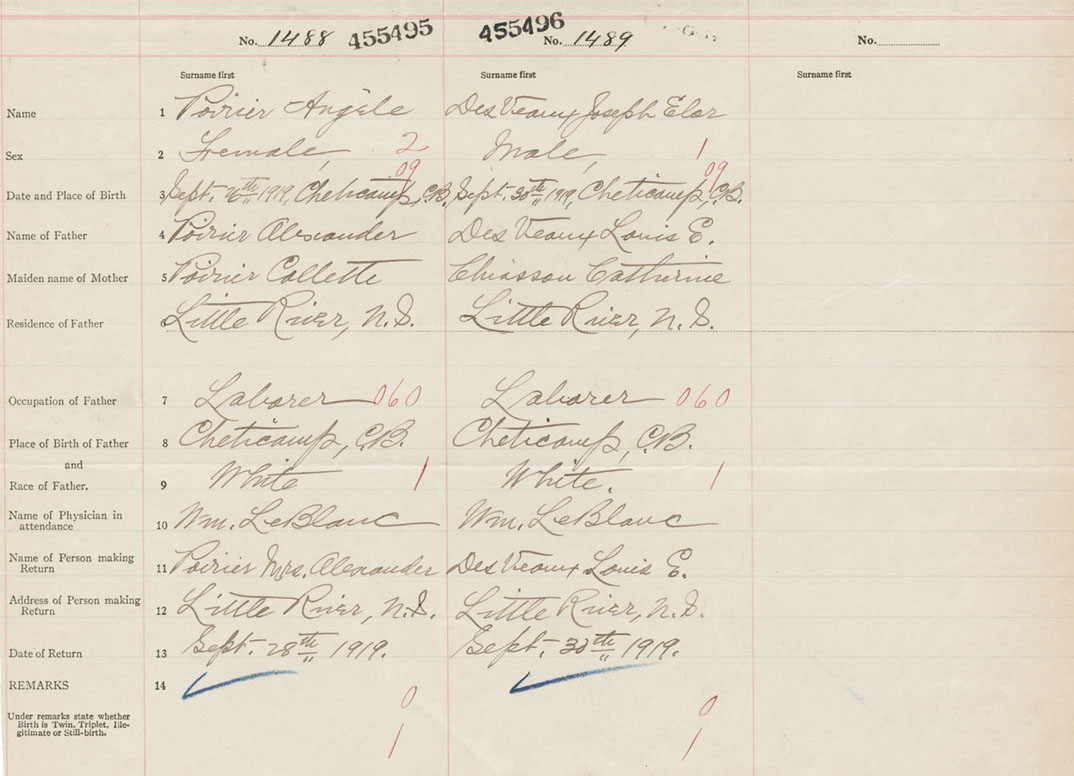 No. 1488 455495 455496 No. 1489 No.
Surname first Surname first Surname first
Name 1 Poirier Angèle DesVeaux Joseph
Sex 2 Female, 2 Male, 1
09 09
Date and Place of Birth 3 Sept. 1919, Cheticamp, C.B. Sept. 30th 1919, Cheticamp, C.B.
Name of Father 4 Poirier Alexander DesVeaux Louis E.
Maiden name of Mother 5 Poirier Collette Chiasson Catherine
Residence of Father 6 Little River, N.S. Little River, N.S.
Occupation of Father 7 Laborer 060 Laborer 060
Place of Birth of Father 8 Cheticamp, C.B. Cheticamp, C.B.
and
Race of Father. 9 White 1 White. 1
Name of Physician in
attendance 10 Wm. LeBlanc Wm. LeBlanc
Name of Person making
Return 11 Poirier Mrs. Alexander DesVeaux Louis E.
Address of Person making
Return 12 Little River, N.S. Little River, N.S.
Date of Return 13 Sept. 28th 1919. Sept. 30th 1919.
REMARKS 14
0 0
Under remarks state whether
Birth is Twin, Triplet, Ille-
gitimate or Still-birth.
1 1